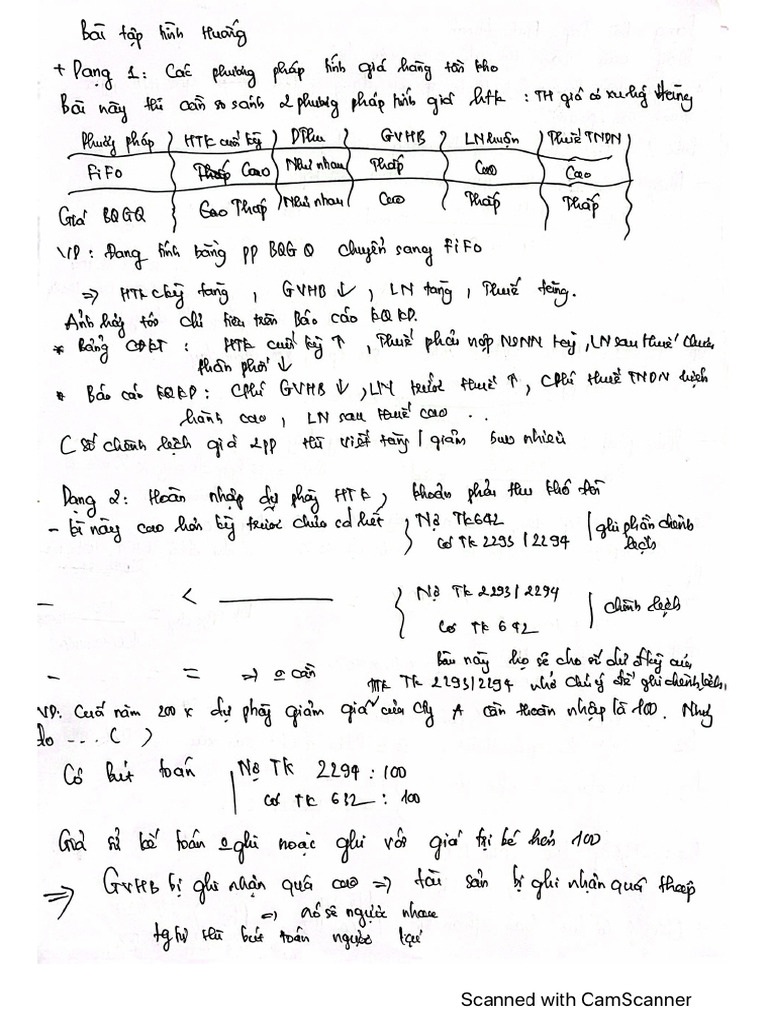 Bài tập tình huống
+ Dạng 1: Các phương pháp tính giá hàng tồn kho
Bài này thì cần so sánh 2 phương pháp tính giá htk : TH giá có xu hg tăng
Phương pháp HTK cuối kỳ DThu GVHB LN thuần Thuế TNDN
FiFo Cao Như nhau Thấp Cao Cao
Giá BQGQ Thấp Như nhau Cao Thấp Thấp
VD: Đang tính bằng pp BQGQ chuyển sang FiFo
=> HTK ckỳ tăng , GVHB ↓ , LN tăng , Thuế tăng.
Ảnh hg tới chỉ tiêu trên Báo cáo KQKD.
* Bảng CĐKT : HTK cuối kỳ ↑ , Thuế phải nộp NSNN , LN sau thuế chưa
phân phối ↓
* Báo cáo KQKD : CPhí GVHB ↓ , LN trước thuế ↑ , CPhí thuế TNDN hiện
hành cao , LN sau thuế cao . .
( Số chênh lệch giá 2pp thì viết tăng / giảm bao nhiêu
Dạng 2: Hoàn nhập dự phòng HTK, khoản phải thu khó đòi
- kì này cao hơn kỳ trước chưa sd hết Nợ TK 642
Có TK 2293 / 2294 ghi phần chênh
lệch
- < Nợ TK 2293 / 2294
Có TK 642 chênh lệch
- = => cần
bài này họ sẽ cho số dư đkỳ của
TK 2293/2294 nhớ chú ý để ghi chênh lệch.
VD: Cuối năm 200x dự phòng giảm giá của Cty A cần hoàn nhập là 100. Như
do ... ( )
Có bút toán Nợ TK 2294 : 100
Có TK 632 : 100
Giả sử kế toán ghi hoặc ghi với giá trị bé hơn 100
=> GVHB bị ghi nhận quá cao => tài sản bị ghi nhận quá thấp
=> nó sẽ ngược nhau
tg tự thì bút toán ngược lại
Scanned with CamScanner